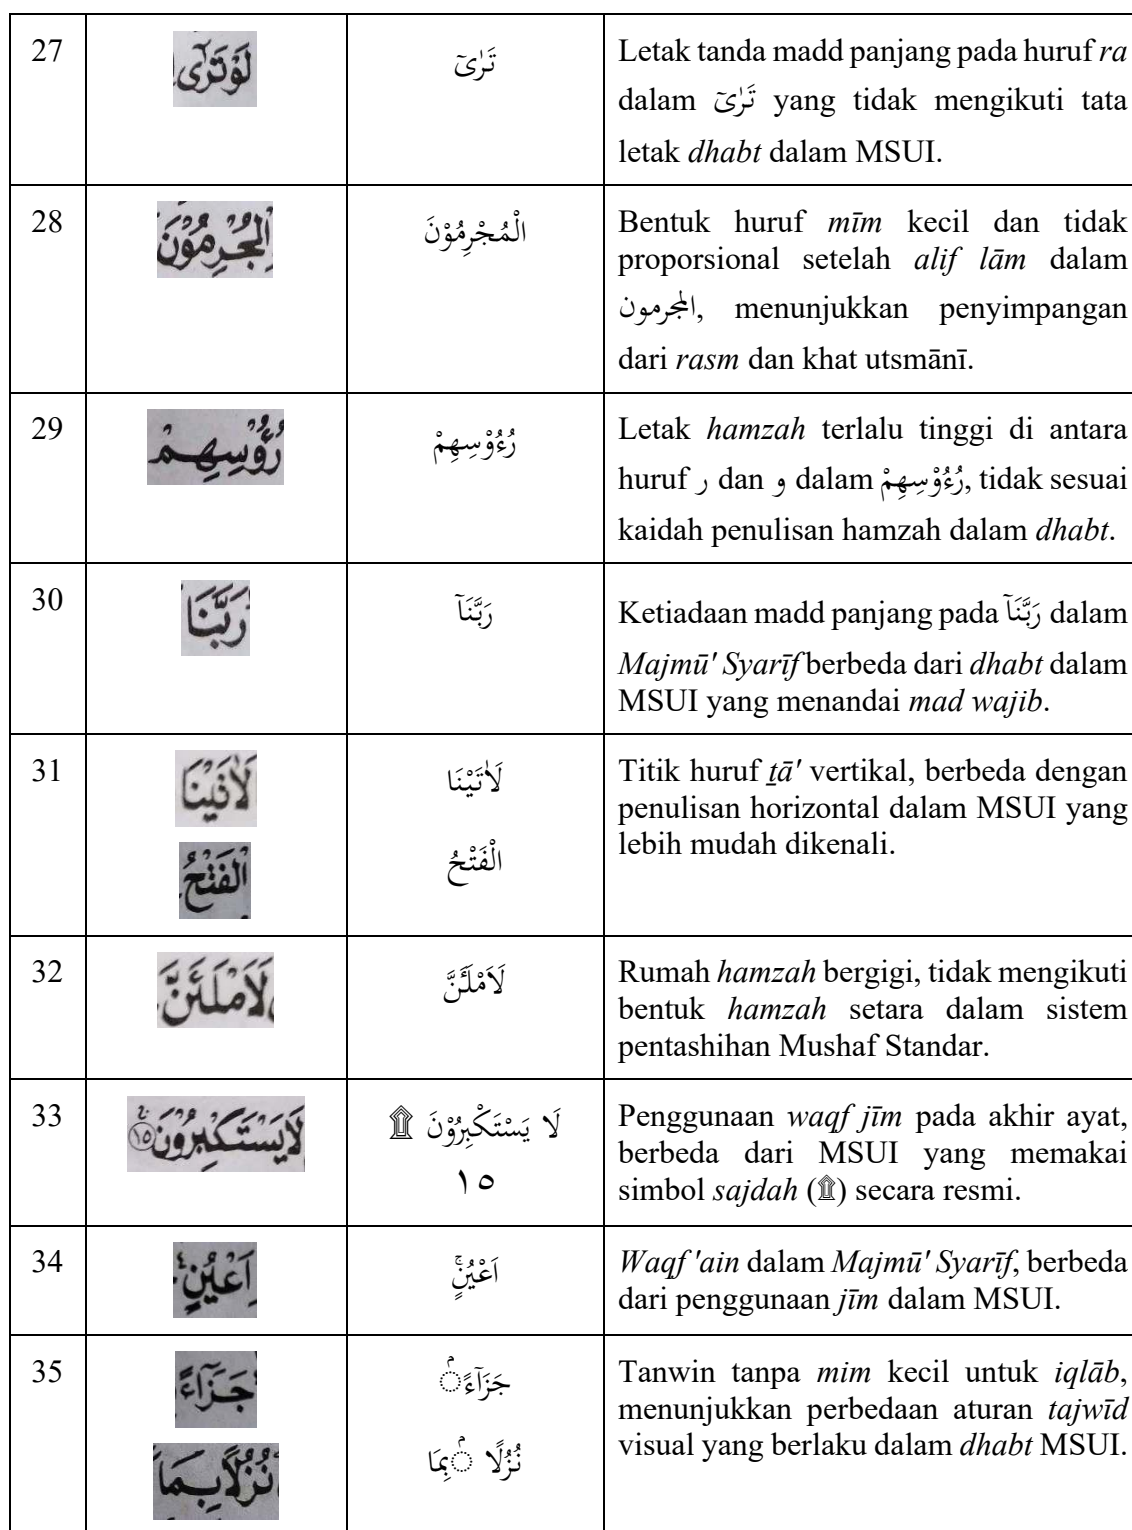 27
لَوْتَرٰٓى
تَرٰىٓ
Letak tanda madd panjang pada huruf ra
dalam تَرٰىٓ yang tidak mengikuti tata
letak dhabt dalam MSUI.
28
الْمُجْرِمُوْنَ
الْمُجْرِمُوْنَ
Bentuk huruf mīm kecil dan tidak
proporsional setelah alif lām dalam
المجرمون, menunjukkan penyimpangan
dari rasm dan khat utsmānī.
29
رُءُوْسِهِمْ
رُءُوْسِهِمْ
Letak hamzah terlalu tinggi di antara
huruf ر dan و dalam رُءُوْسِهِمْ, tidak sesuai
kaidah penulisan hamzah dalam dhabt.
30
رَبَّنَا
رَبَّنَآ
Ketiadaan madd panjang pada رَبَّنَآ dalam
Majmū' Syarīf berbeda dari dhabt dalam
MSUI yang menandai mad wajib.
31
لَاٰتَيْنَا
الْفَتْحُ
لَاٰتَيْنَا
الْفَتْحُ
Titik huruf ṯā' vertikal, berbeda dengan
penulisan horizontal dalam MSUI yang
lebih mudah dikenali.
32
لَاَمْلَئَنَّ
لَاَمْلَـَٔنَّ
Rumah hamzah bergigi, tidak mengikuti
bentuk hamzah setara dalam sistem
pentashihan Mushaf Standar.
33
لَايَسْتَكْبِرُوْنَ ۚ ١٥
لَا يَسْتَكْبِرُوْنَ ۩
١٥
Penggunaan waqf jīm pada akhir ayat,
berbeda dari MSUI yang memakai
simbol sajdah (۩) secara resmi.
34
اَعْيُنٍ ع
اَعْيُنٍۚ
Waqf 'ain dalam Majmū' Syarīf, berbeda
dari penggunaan jīm dalam MSUI.
35
جَزَآءً
نُزُلًابِمَا
جَزَآءً ۢ
نُزُلًا ۢبِمَا
Tanwin tanpa mim kecil untuk iqlāb,
menunjukkan perbedaan aturan tajwīd
visual yang berlaku dalam dhabt MSUI.